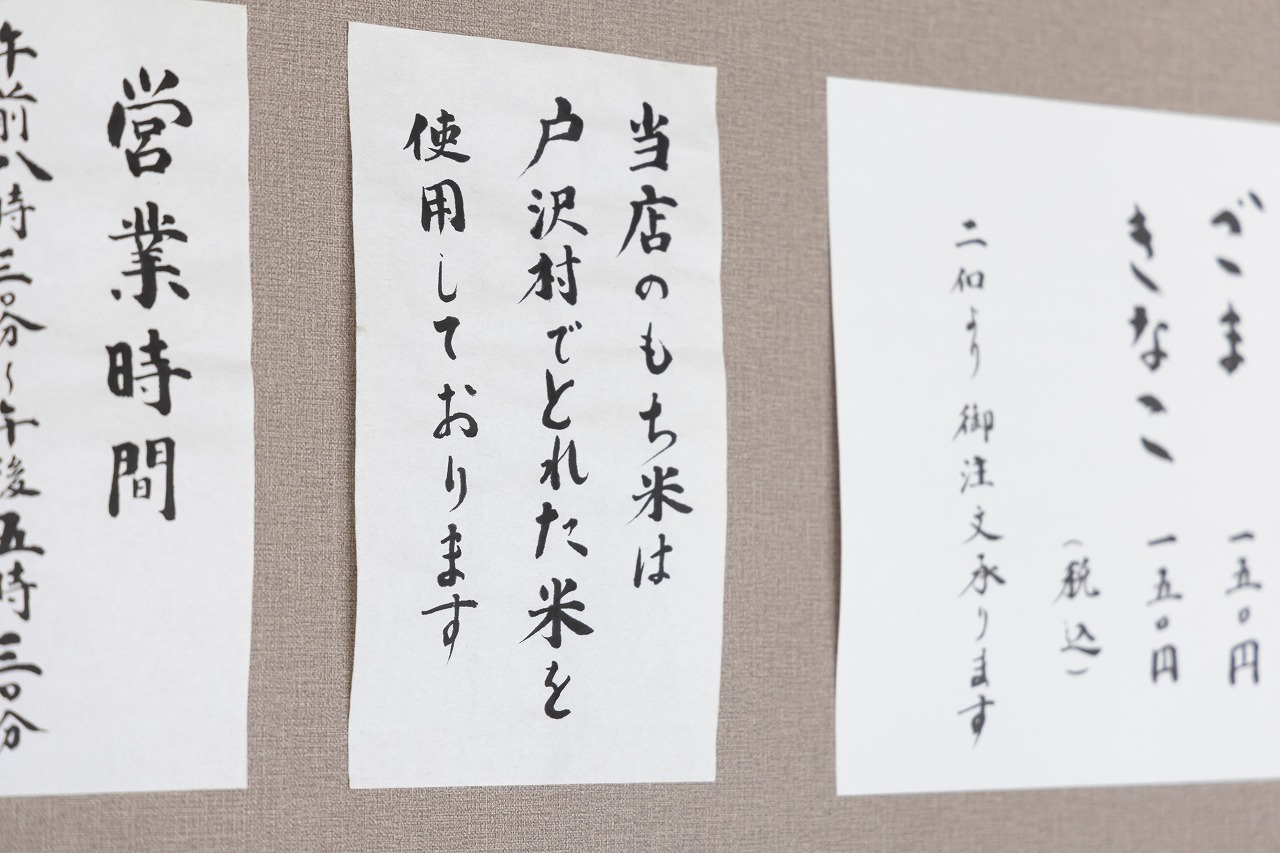 ごま 一五〇円
きなこ 一五〇円
（税込）
二個より御注文承ります
当店のもち米は
戸沢村でとれた米を
使用しております
営業時間
午前八時三〇分～午後五時三〇分